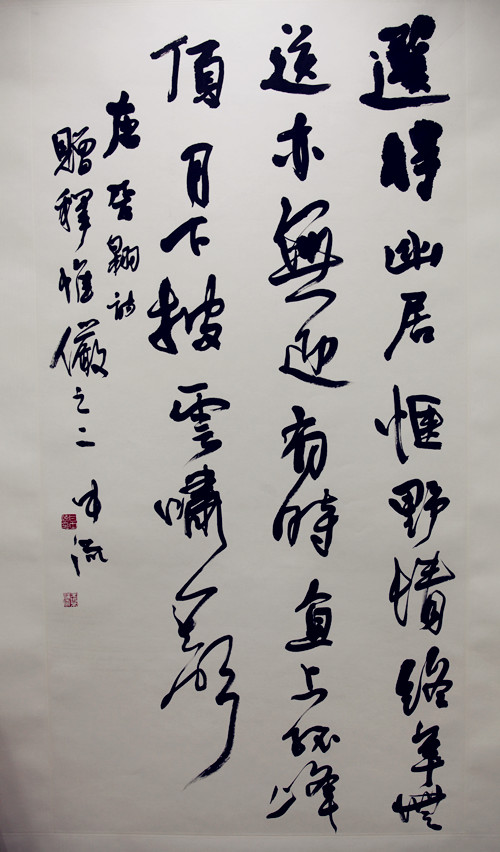 選得幽居愜野情終年無
送亦無迎有時直上孤峰
頂月下披雲嘯一聲
唐李翱詩
贈釋惟儼之二 流